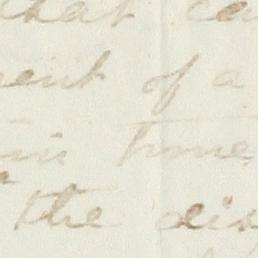 that ca
ent of a
in time
the dis